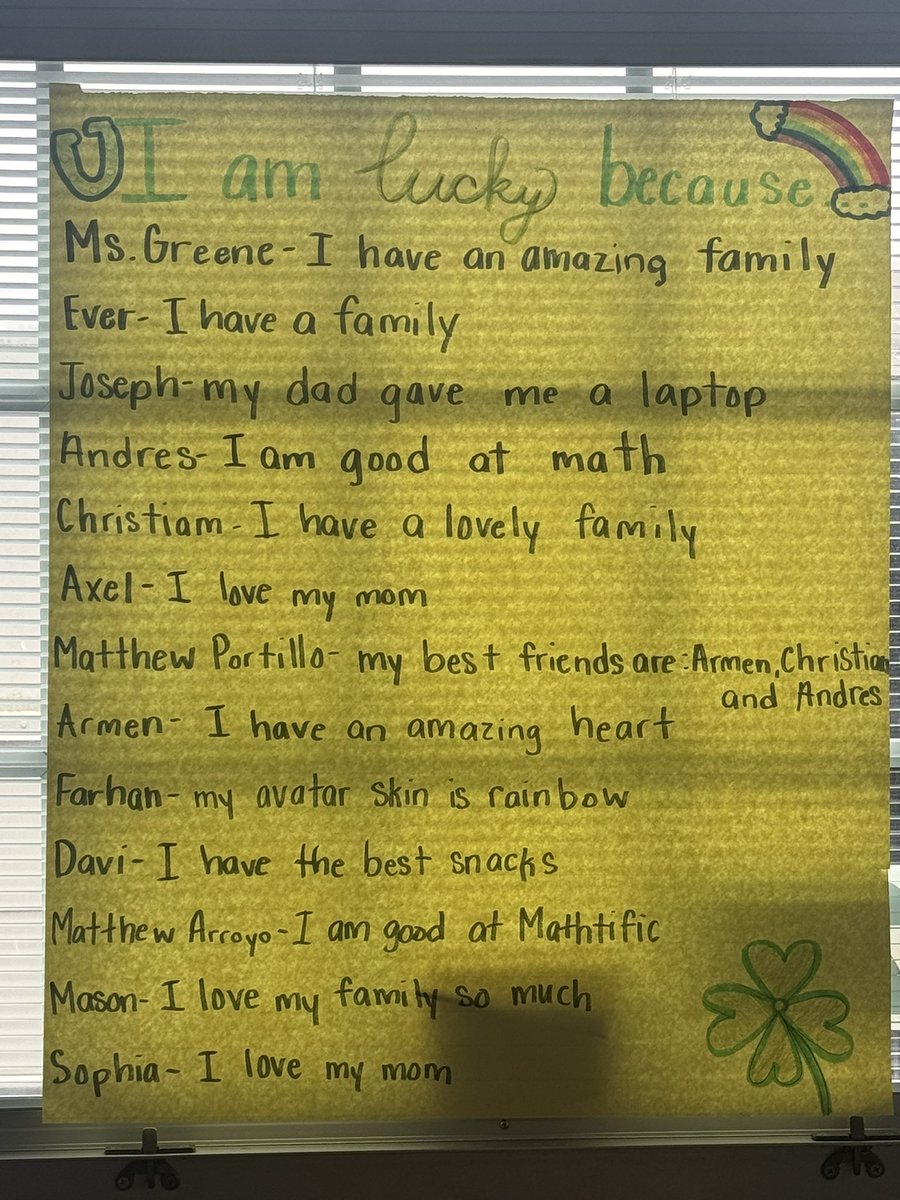 I am lucky because
Ms. Greene- I have an amazing family
Ever- I have a family
Joseph- my dad gave me a laptop
Andres- I am good at math
Christiam- I have a lovely family
Axel- I love my mom
Matthew Portillo- my best friends are: Armen, Christian
and Andres
Armen- I have an amazing heart
Farhan- my avatar skin is rainbow
Davi- I have the best snacks
Matthew Arroyo- I am good at Mathtific
Mason- I love my family so much
Sophia- I love my mom